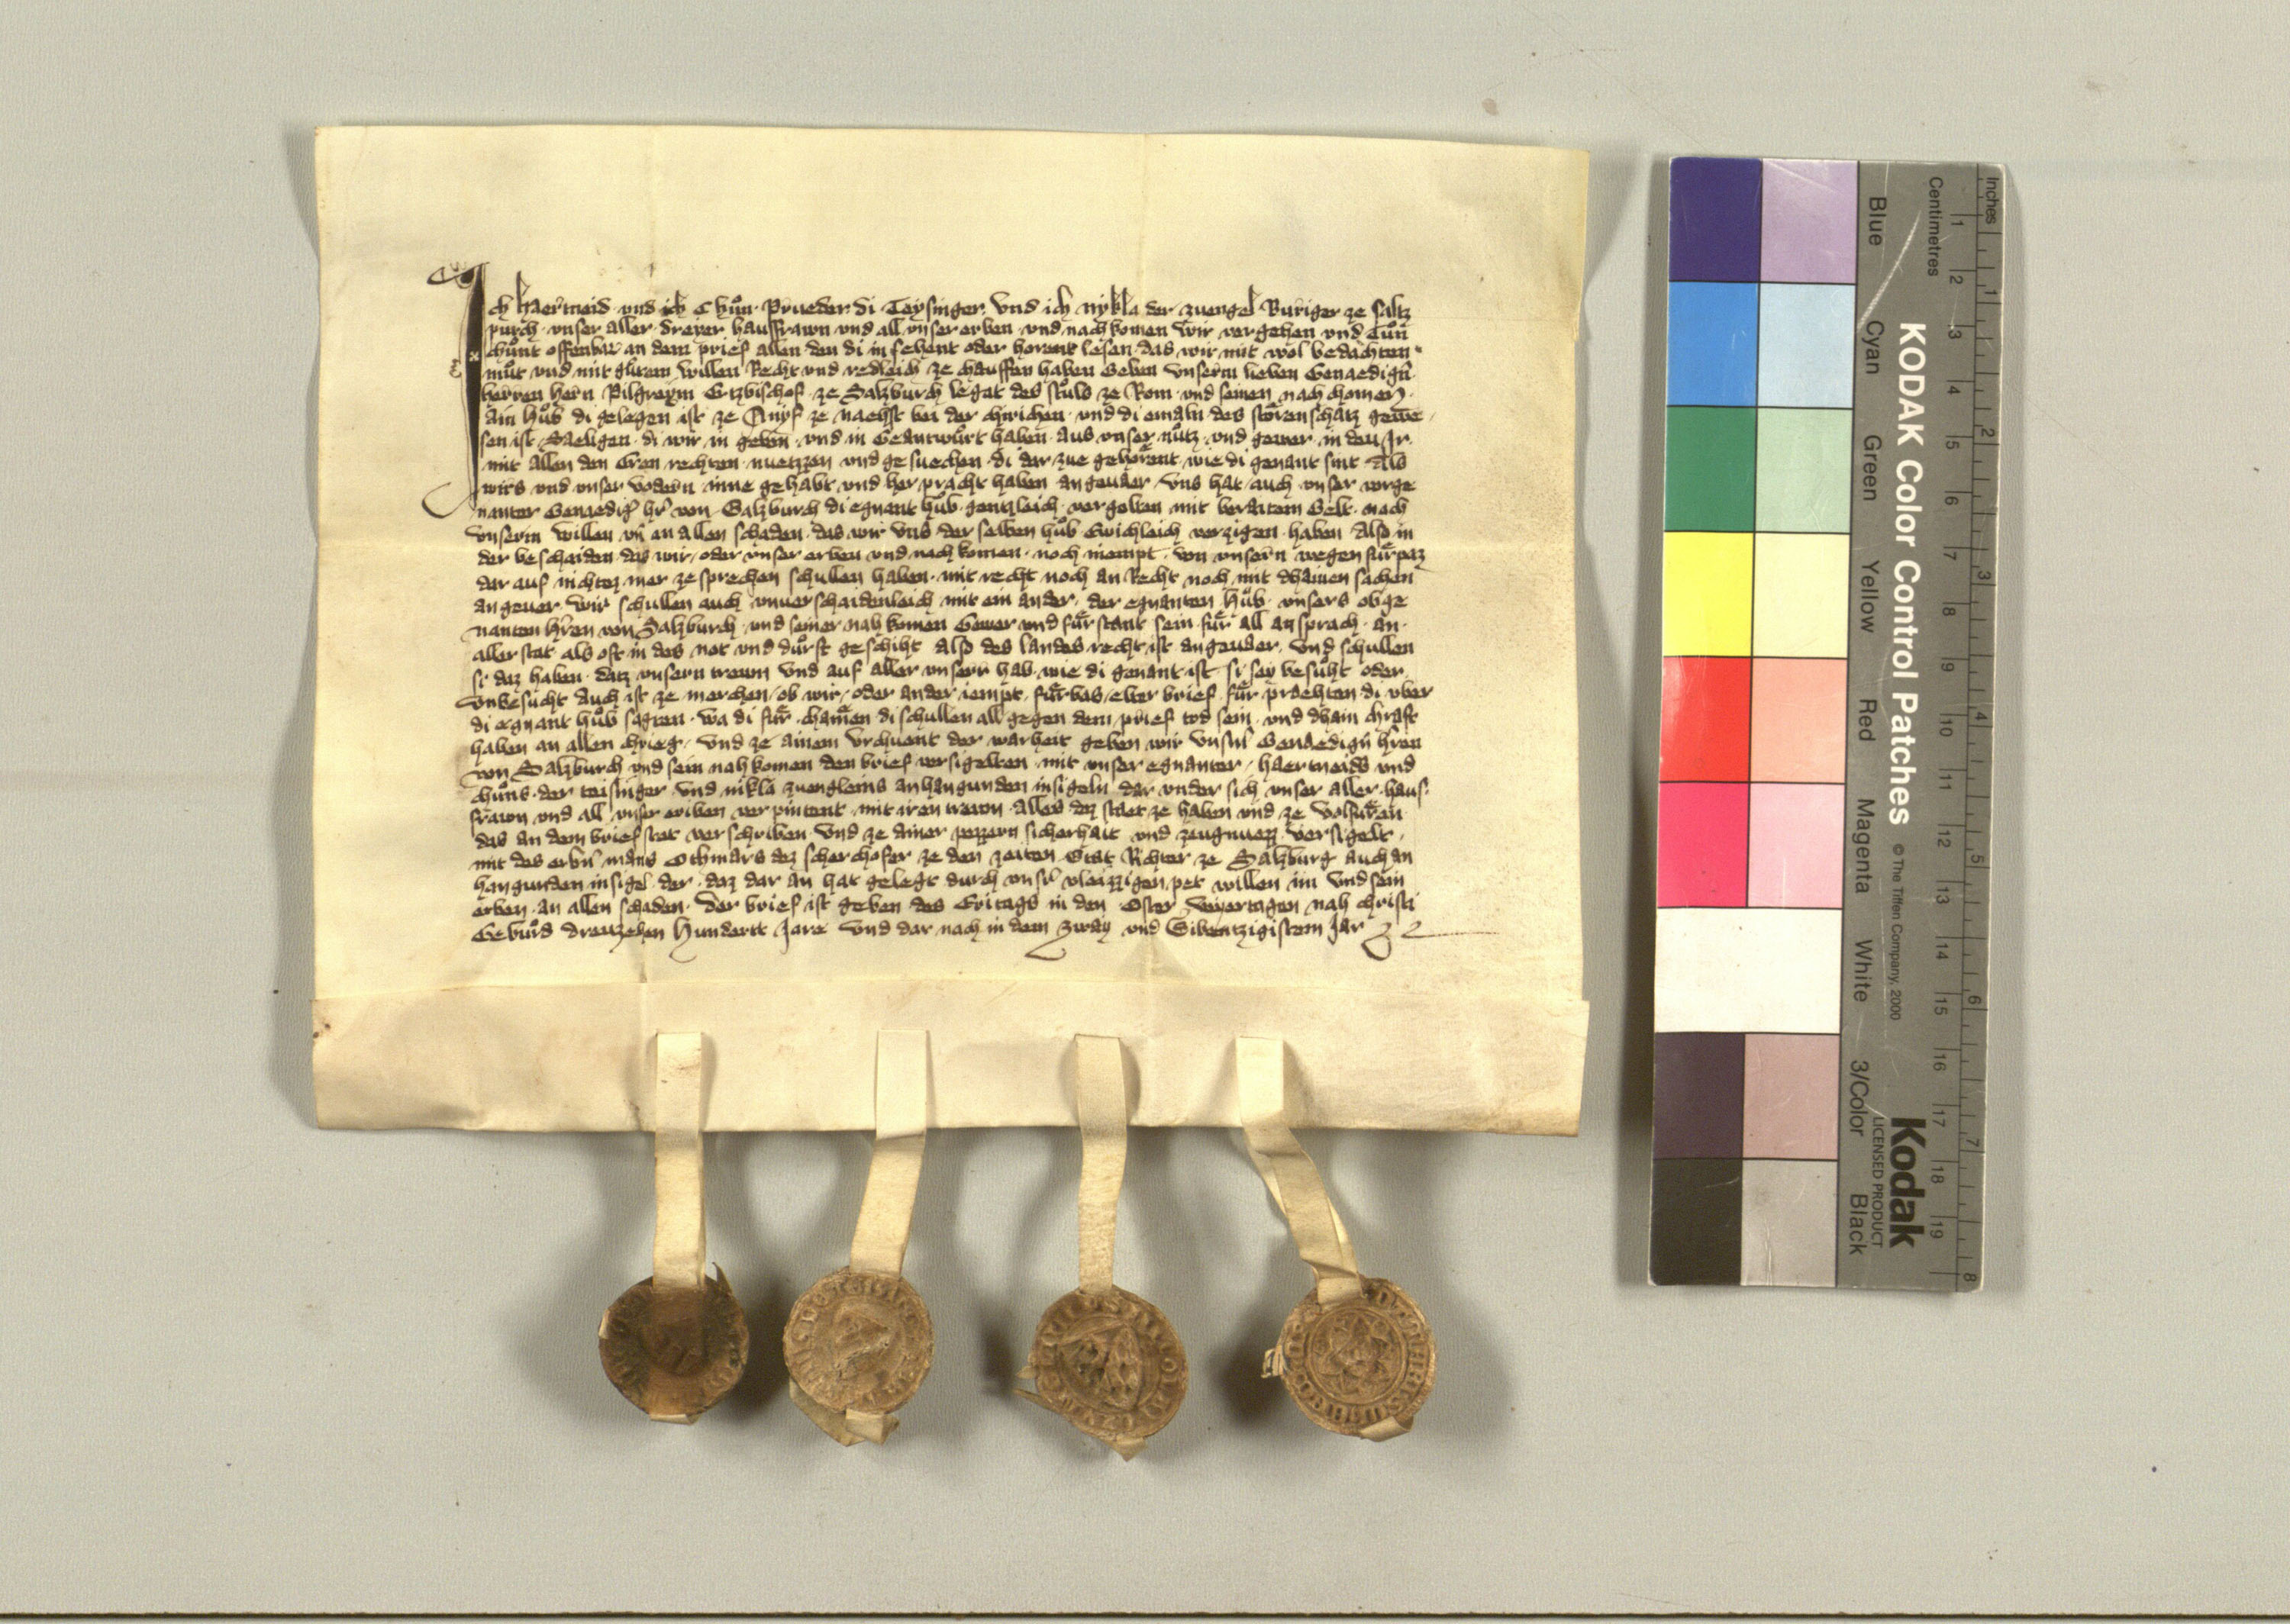 Ich Haertneid und ich Chuͦn Prueder di Teysinger Und ich Nykla der zuengel Buriger ze Saltz
purch unser aller dreyer hausfrawn und all unser erben und nachkomen Wir vergehen und Tuͦn
chuͦnt offenbar an dem prief allen den di in sehent oder horent lesen das wir mit wol bedachten
muͦt und mit guͦtem willen Recht und redleich ze chauffen haben Geben Unserm lieben Genaedign̄
herren hern Pilgreym Ertzbischof ze Salzburch legat des stuͦls ze Rom und seinen nach chomen
Ain huͦb di gelegen ist ze Anyf ze naechst bei der chirichen und di emaln des storenschatz gewe
sen ist Saeligen di wir in geben und in Geantwuͦrt haben aus unser nuͦtz und gewer in den Ir
mit allen den Eren rechten nuetzzen und gesuechen di dar zue gehoͤrent wie di genant sint Als
wirs und unser vodern inne gehabt und her pracht haben angeuaer Uns hat auch unser vorge
nanter Genaedig hr̄ von Salzburch di egnant huͦb gentzleich vergolten mit beraitem Gelt nach
Unserm willen un̄ an allen schaden das wir uns der selben huͦb Ewichleich verzigen haben Also in
der bescheiden das wir oder unser erben und nachkomen noch niempt von unsern wegen fuͤrpaz
dar auf nichtez mer ze sprechen schullen haben mit recht noch an Recht noch mit dhainen sachen
angeuer Wir schullen auch unuerschaidenleich mit ein ander der egnanten Huͦb unsers obge
nanten hr̄en von Salzburch und seiner nahkomen Gewer und fuͤrstant sein fuͤr all ansprach an
aller stat als oft in des not und duͦrft geschiht Also des landes recht ist angeuaer Und schullen
si daz haben datz unsern trewn Und auf aller unserr hab wie di genant ist si sey besuͦht oder
Unbesucht Auch ist ze merchen ob wir oder ander iempt fuͤrbas elter brief fuͤr praehten di uber
di egnant huͦb sagten wa di fuͤr chaͤmen di schullen all gegen dem prief tod sein und dhain chraft
haben an allen chrieg Und ze ainem Urchuent der warheit geben wir Unsm̄ Genaedign̄ hr̄en
von Salzburch und sein nahkomen den brief versigelten mit unser egnanter Haertneids und
chuͦns der teisinger und nikla zuengleins anhangunden insigeln dar under sich unser aller haus
frawn und all unser eriben verpintent mit iren trewn alles dez staet ze haben und ze volfuͤren
das an dem brief stet verschriben Und ze ainer pezzern sicherhait und zeugnuezz versigelt
mit des erbn̄ mans Othmars dez scherchofer ze den zeiten Stat Richter ze Salzburg auch an
hangunden insigel der daz dar an hat gelegt durch unsr̄ vleizzigen pet willen im und sein
erben an allen schaden Der brief ist geben des Eritags in den Oster veyertagen nah christi
Geburd dreuzehen Hundertt Jare Und dar nach in dem Zway und Sibentzigistem Jar
KODAK Color Control Patches
© The Tiffen Company, 2000
Kodak
LICENSED PRODUCT
Blue Cyan Green Yellow Red Magenta White 3/Color Black
Centimetres 1 2 3 4 5 6 7 8 9 10 11 12 13 14 15 16 17 18 19
Inches 1 2 3 4 5 6 7 8